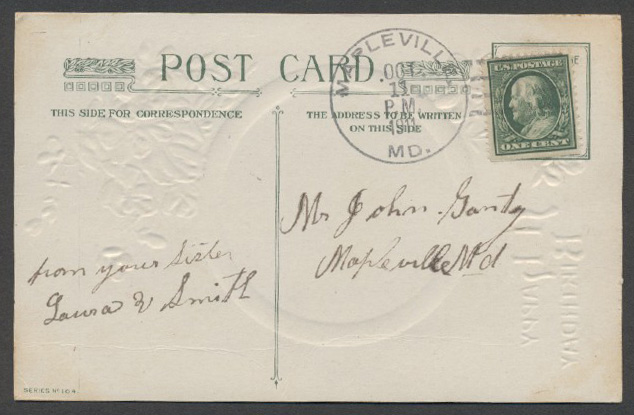 POST CARD.
THIS SIDE FOR CORRESPONDENCE
THE ADDRESS TO BE WRITTEN
ON THIS SIDE
MAPLEVILLE
OCT
P.M.
1911
MD.
U.S. POSTAGE
ONE CENT
Mr John Ganty
Mapleville Md
from your Sister
Laura V Smith
BIRTHDAY
HAPPY
SERIES No 104.